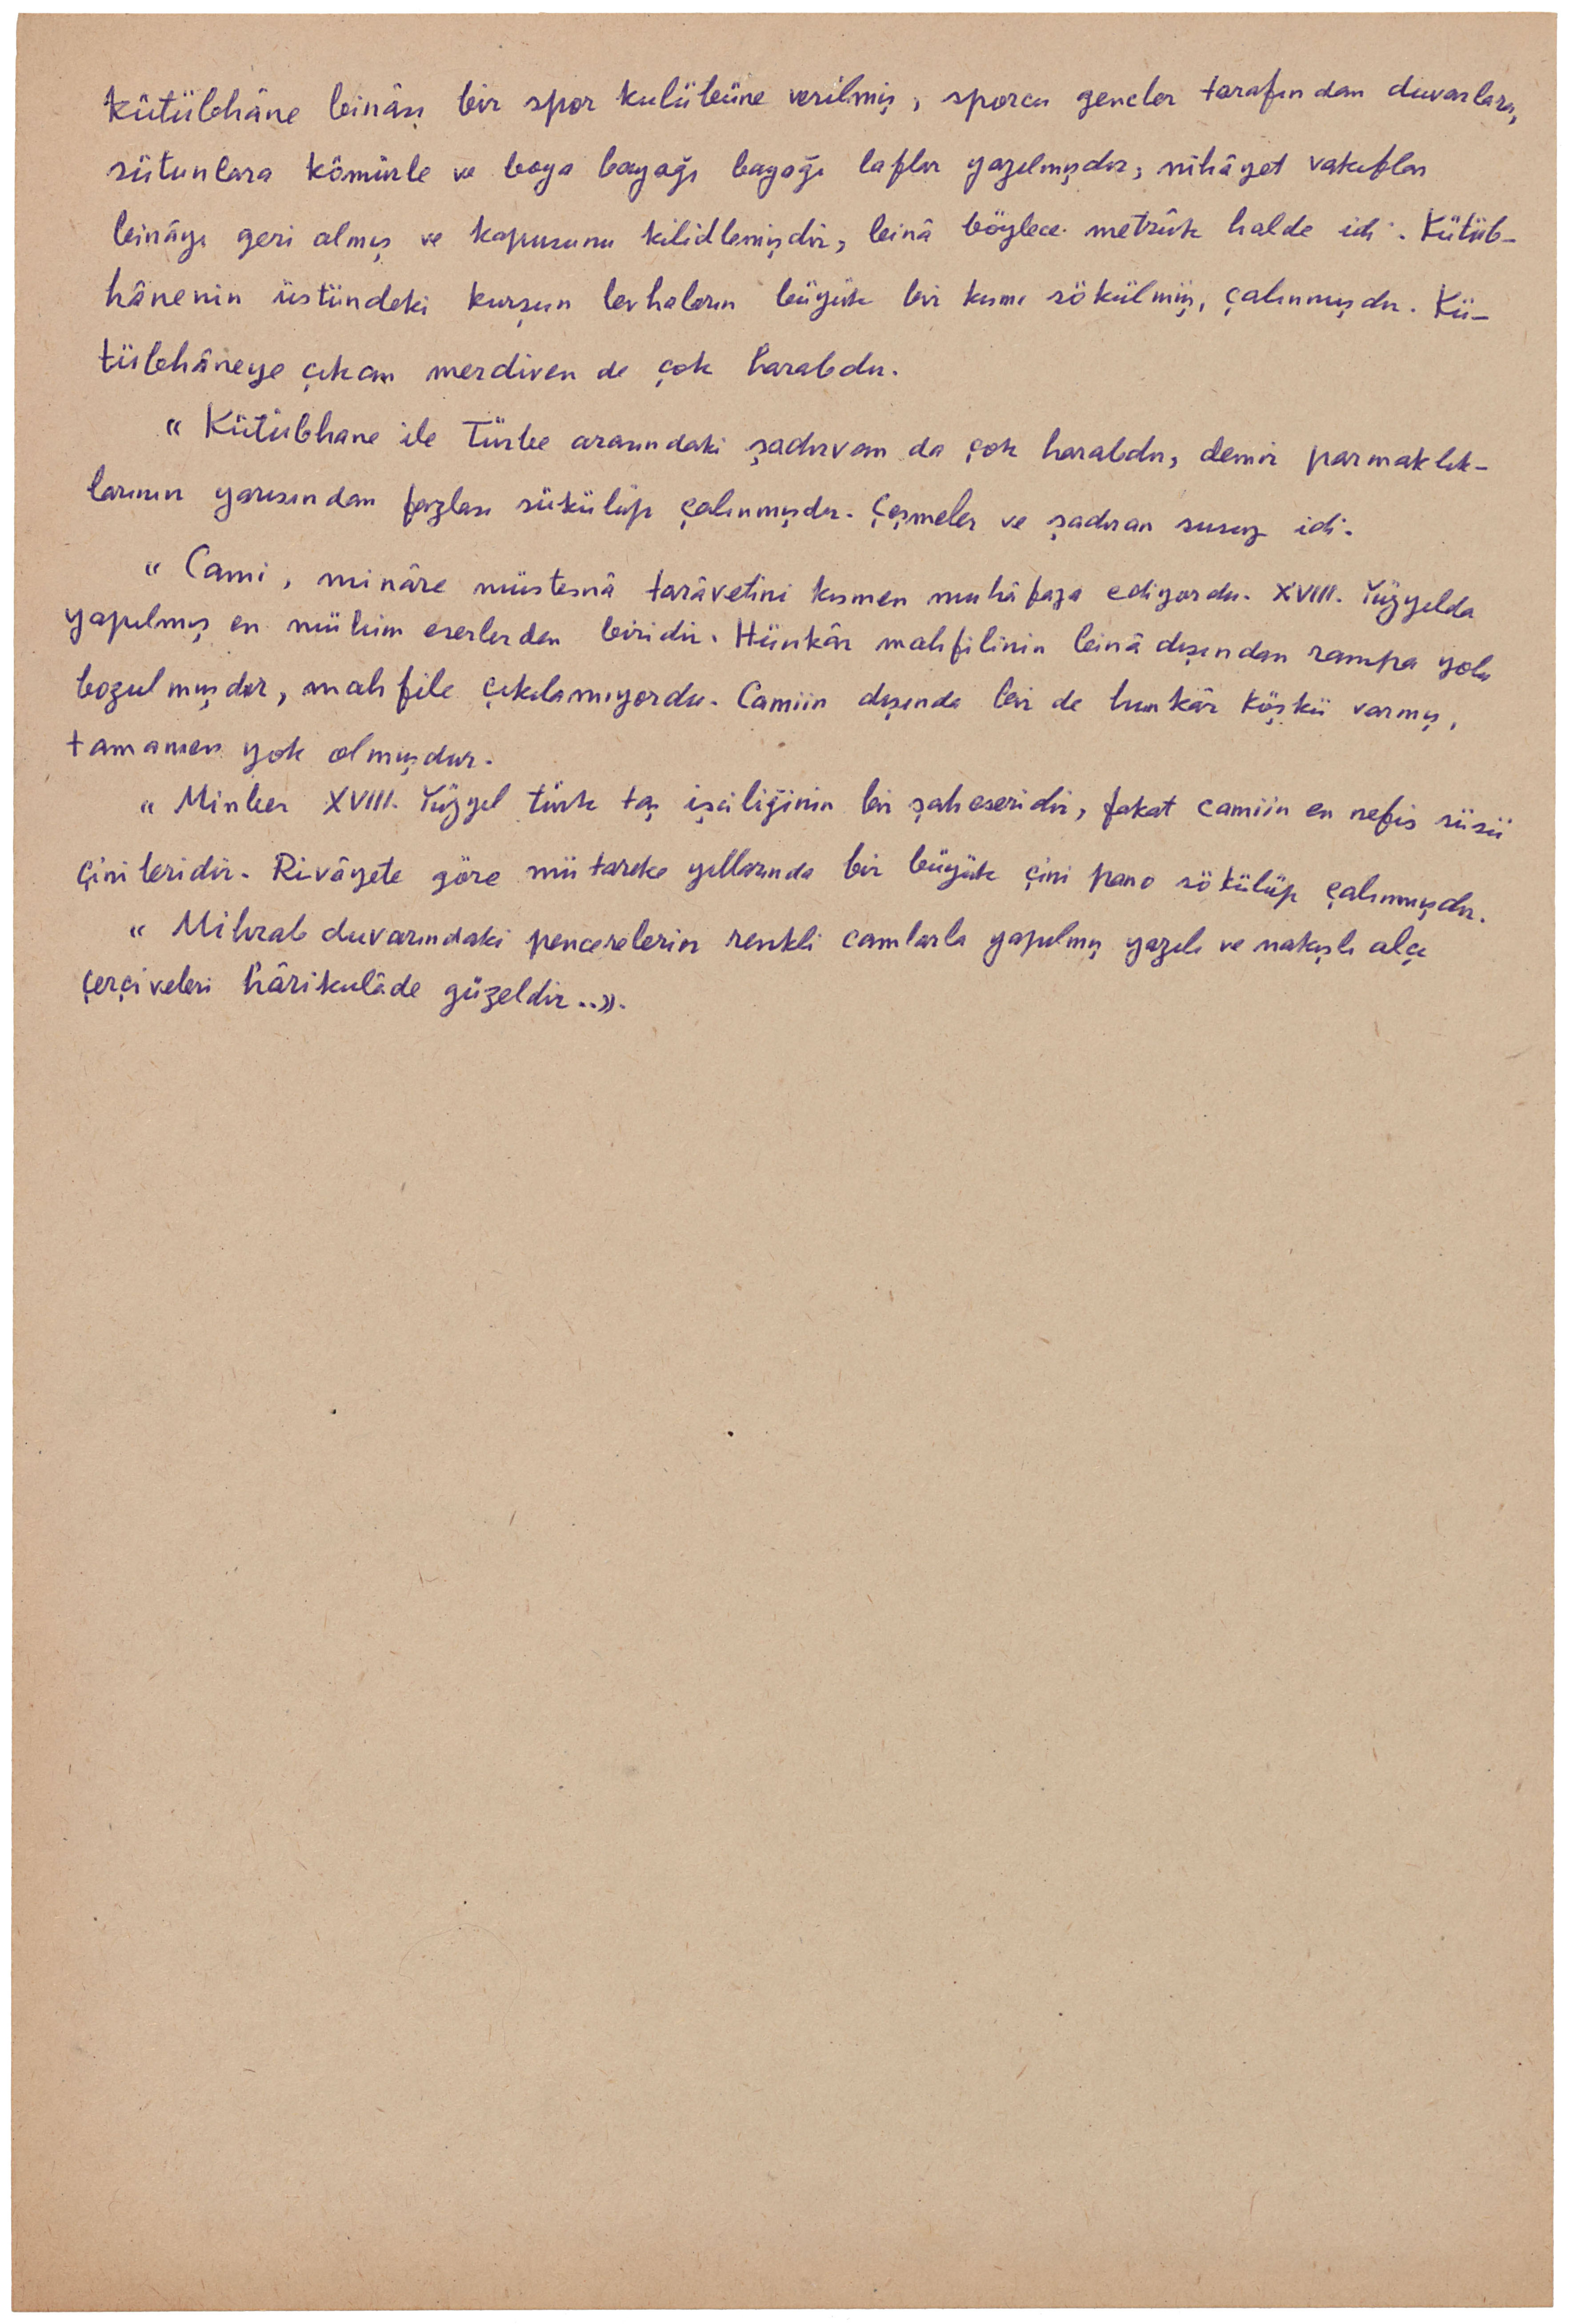 Kütübhâne binâsı bir spor kulübüne verilmiş, sporcu gencler tarafından duvarlara,
sütunlara kömürle ve boya bayağı bayağı laflar yazılmışdır, nihâyet vakıflar
binâyı geri almış ve kapusunu kilidlemişdir, binâ böylece metrûk halde idi. Kütüb-
hânenin üstündeki kurşun levhaların büyük bir kısmı sökülmüş, çalınmışdır. Kü-
tübhâneye çıkan merdiven de çok harabdır.
« Kütübhane ile Türbe arasındaki şadırvan da çok harabdır, demir parmaklık-
larının yarısından fazlası sükülüp çalınmışdır. Çeşmeler ve şadıran susuz idi.
« Cami, minâre müstesnâ tarâvetini kısmen muhâfaza ediyordu. XVIII. Yüzyılda
yapılmış en mühim eserlerden biridir. Hünkâr mahfilinin binâ dışından rampa yolu
bozulmuşdur, mahfile çıkılamıyordu. Camiin dışında bir de hunkâr köşkü varmış,
tamamen yok olmuşdur.
« Minber XVIII. Yüzyıl türk taş işciliğinin bir şaheseridir, fakat camiin en nefis süsü
çinileridir. Rivâyete göre mütareke yıllarında bir büyük çini pano sökülüp çalınmışdır.
« Mihrab duvarındaki pencerelerin renkli camlarla yapılmış yazılı ve nakışlı alçı
çerçiveleri hârikulâde güzeldir..».